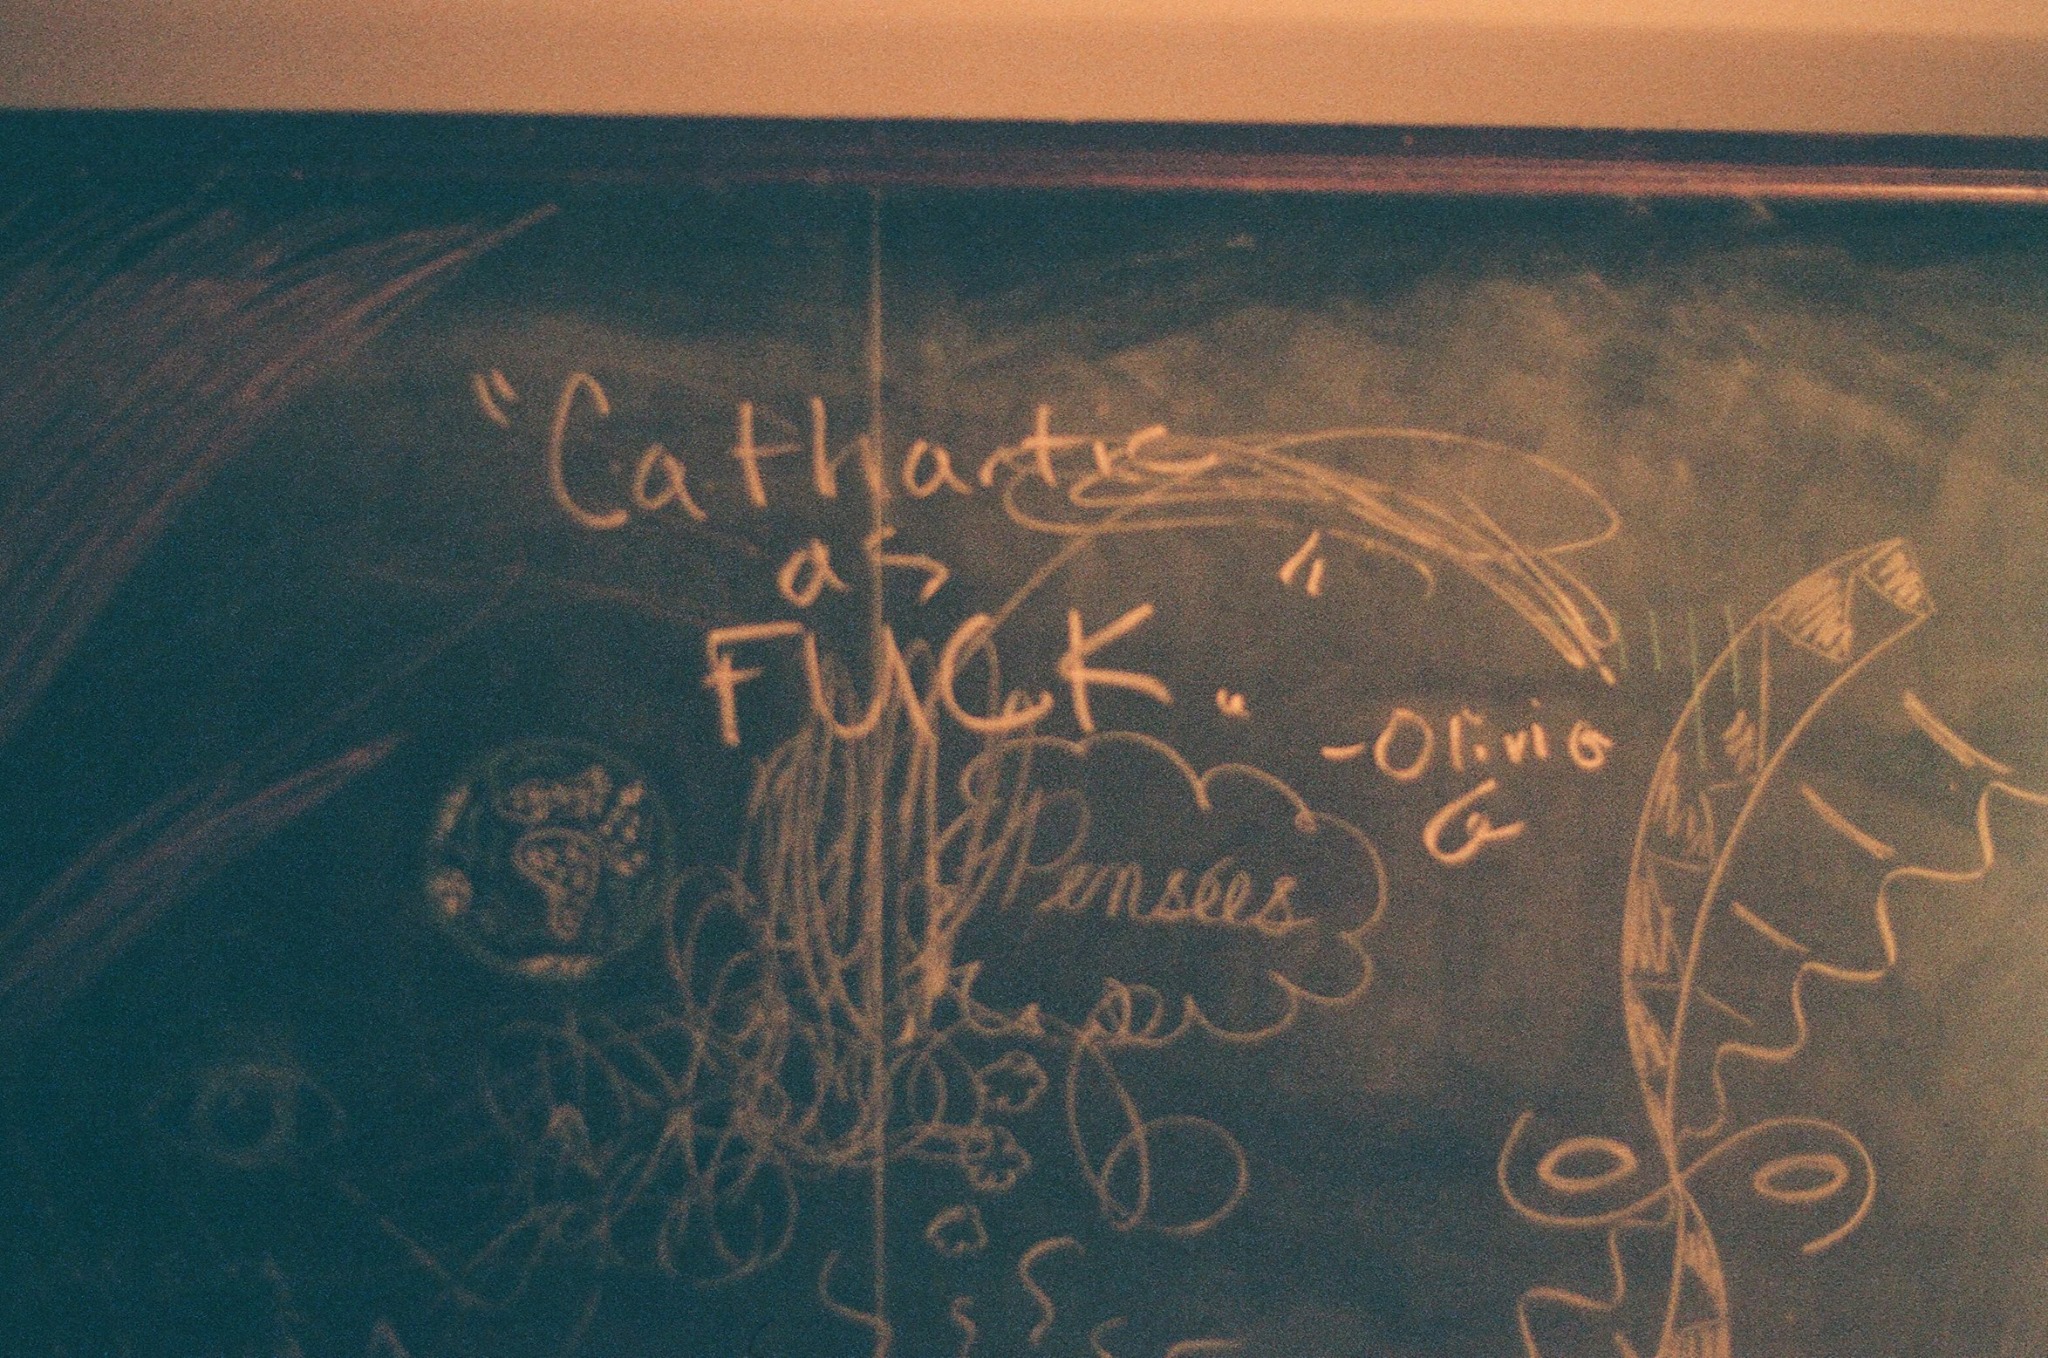 "Cathartic
as
FUCK."
-Olivia
G
Pensées